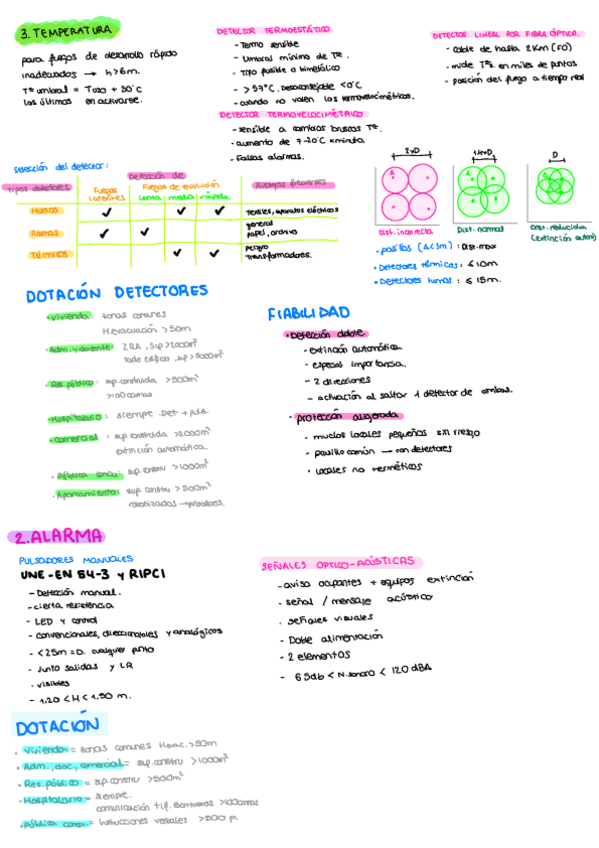 3. TEMPERATURA
para fuegos de desarrollo rápido
inadecuados → h > 6m.
Tª umbral = Tuso + 30°C
los últimos en activarse.
DETECTOR TERMOESTÁTICO
- Termo sensible
- Umbral mínimo de Tª.
- Tipo fusible o bimetálico
- > 57°C. Desaconsejable < 0°C
- cuando no valen los termovelocimétricos.
DETECTOR TERMOVELOCIMÉTRICO
- sensible a cambios bruscos Tª.
- aumento de 7-10°C x minuto.
- Falsas alarmas.
DETECTOR LINEAL POR FIBRA ÓPTICA.
- Cable de hasta 2Km (FO)
- mide Tªs. en miles de puntos
- posición del fuego a tiempo real
Selección del detector:
Tipos detectores
Detección de
Fuegos latentes
Fuegos de evolución
Lenta media rápida
Humos ✓ ✓ ✓ Textiles, aparatos eléctricos
llamas ✓ ✓ general papel, archivo
Térmicos ✓ ✓ peligro Transformadores.
2xD
1.4xD
D
Dist. incorrecta
Dist. normal
Dist. reducida
(extinción autom)
- pasillos (A<3m): Dist. max
• Detectores térmicos: ≤ 10m.
• Detectores humos: ≤ 15m.
DOTACIÓN DETECTORES
• Vivienda: zonas comunes
H evacuación > 50m
• Adm. y docente: 2 RA, sup > 2000m²
todo edificio, sup > 5000m²
• Res. público: sup. construida > 500m²
> 100 camas
• Hospitalario: siempre. Det + puls.
• Comercial: sup construida > 2000m²
extinción automática
• Pública concu: sup. constru > 1000m²
• Aparcamiento: sup. constru > 500m²
robotizados → pulsadores.
FIABILIDAD
• Detección doble
- extinción automática
- especial importancia.
- 2 direcciones
- activación al saltar 1 detector de ambas.
• protección aligerada
- muchos locales pequeños sin riesgo
- pasillo común → con detectores
• locales no herméticos
2. ALARMA
PULSADORES MANUALES
UNE-EN 54-3 y RIPCI
- Detección manual.
- cierta resistencia
- LED y control
- convencionales, direccionables y analógicos
- < 25m = D. cualquier punto
- Junto salidas y LR
- visibles
- 1.20 < H < 1.50 m.
SEÑALES OPTICO-ACÚSTICAS
- aviso ocupantes + equipos extinción
- señal / mensaje acústico
. señales visuales
- Doble alimentación
- 2 elementos
- 65db < N. sonoro < 120 dBA
DOTACIÓN
• Vivienda = zonas comunes Hevac. > 50m
• Adm, doc, comercial = sup. constru > 1000m²
• Res. público = sup constru > 500m²
• Hospitalario = siempre.
comunicación tlf. Bomberos > 100 camas
• Pública concu. = Instrucciones verbales > 500 p.